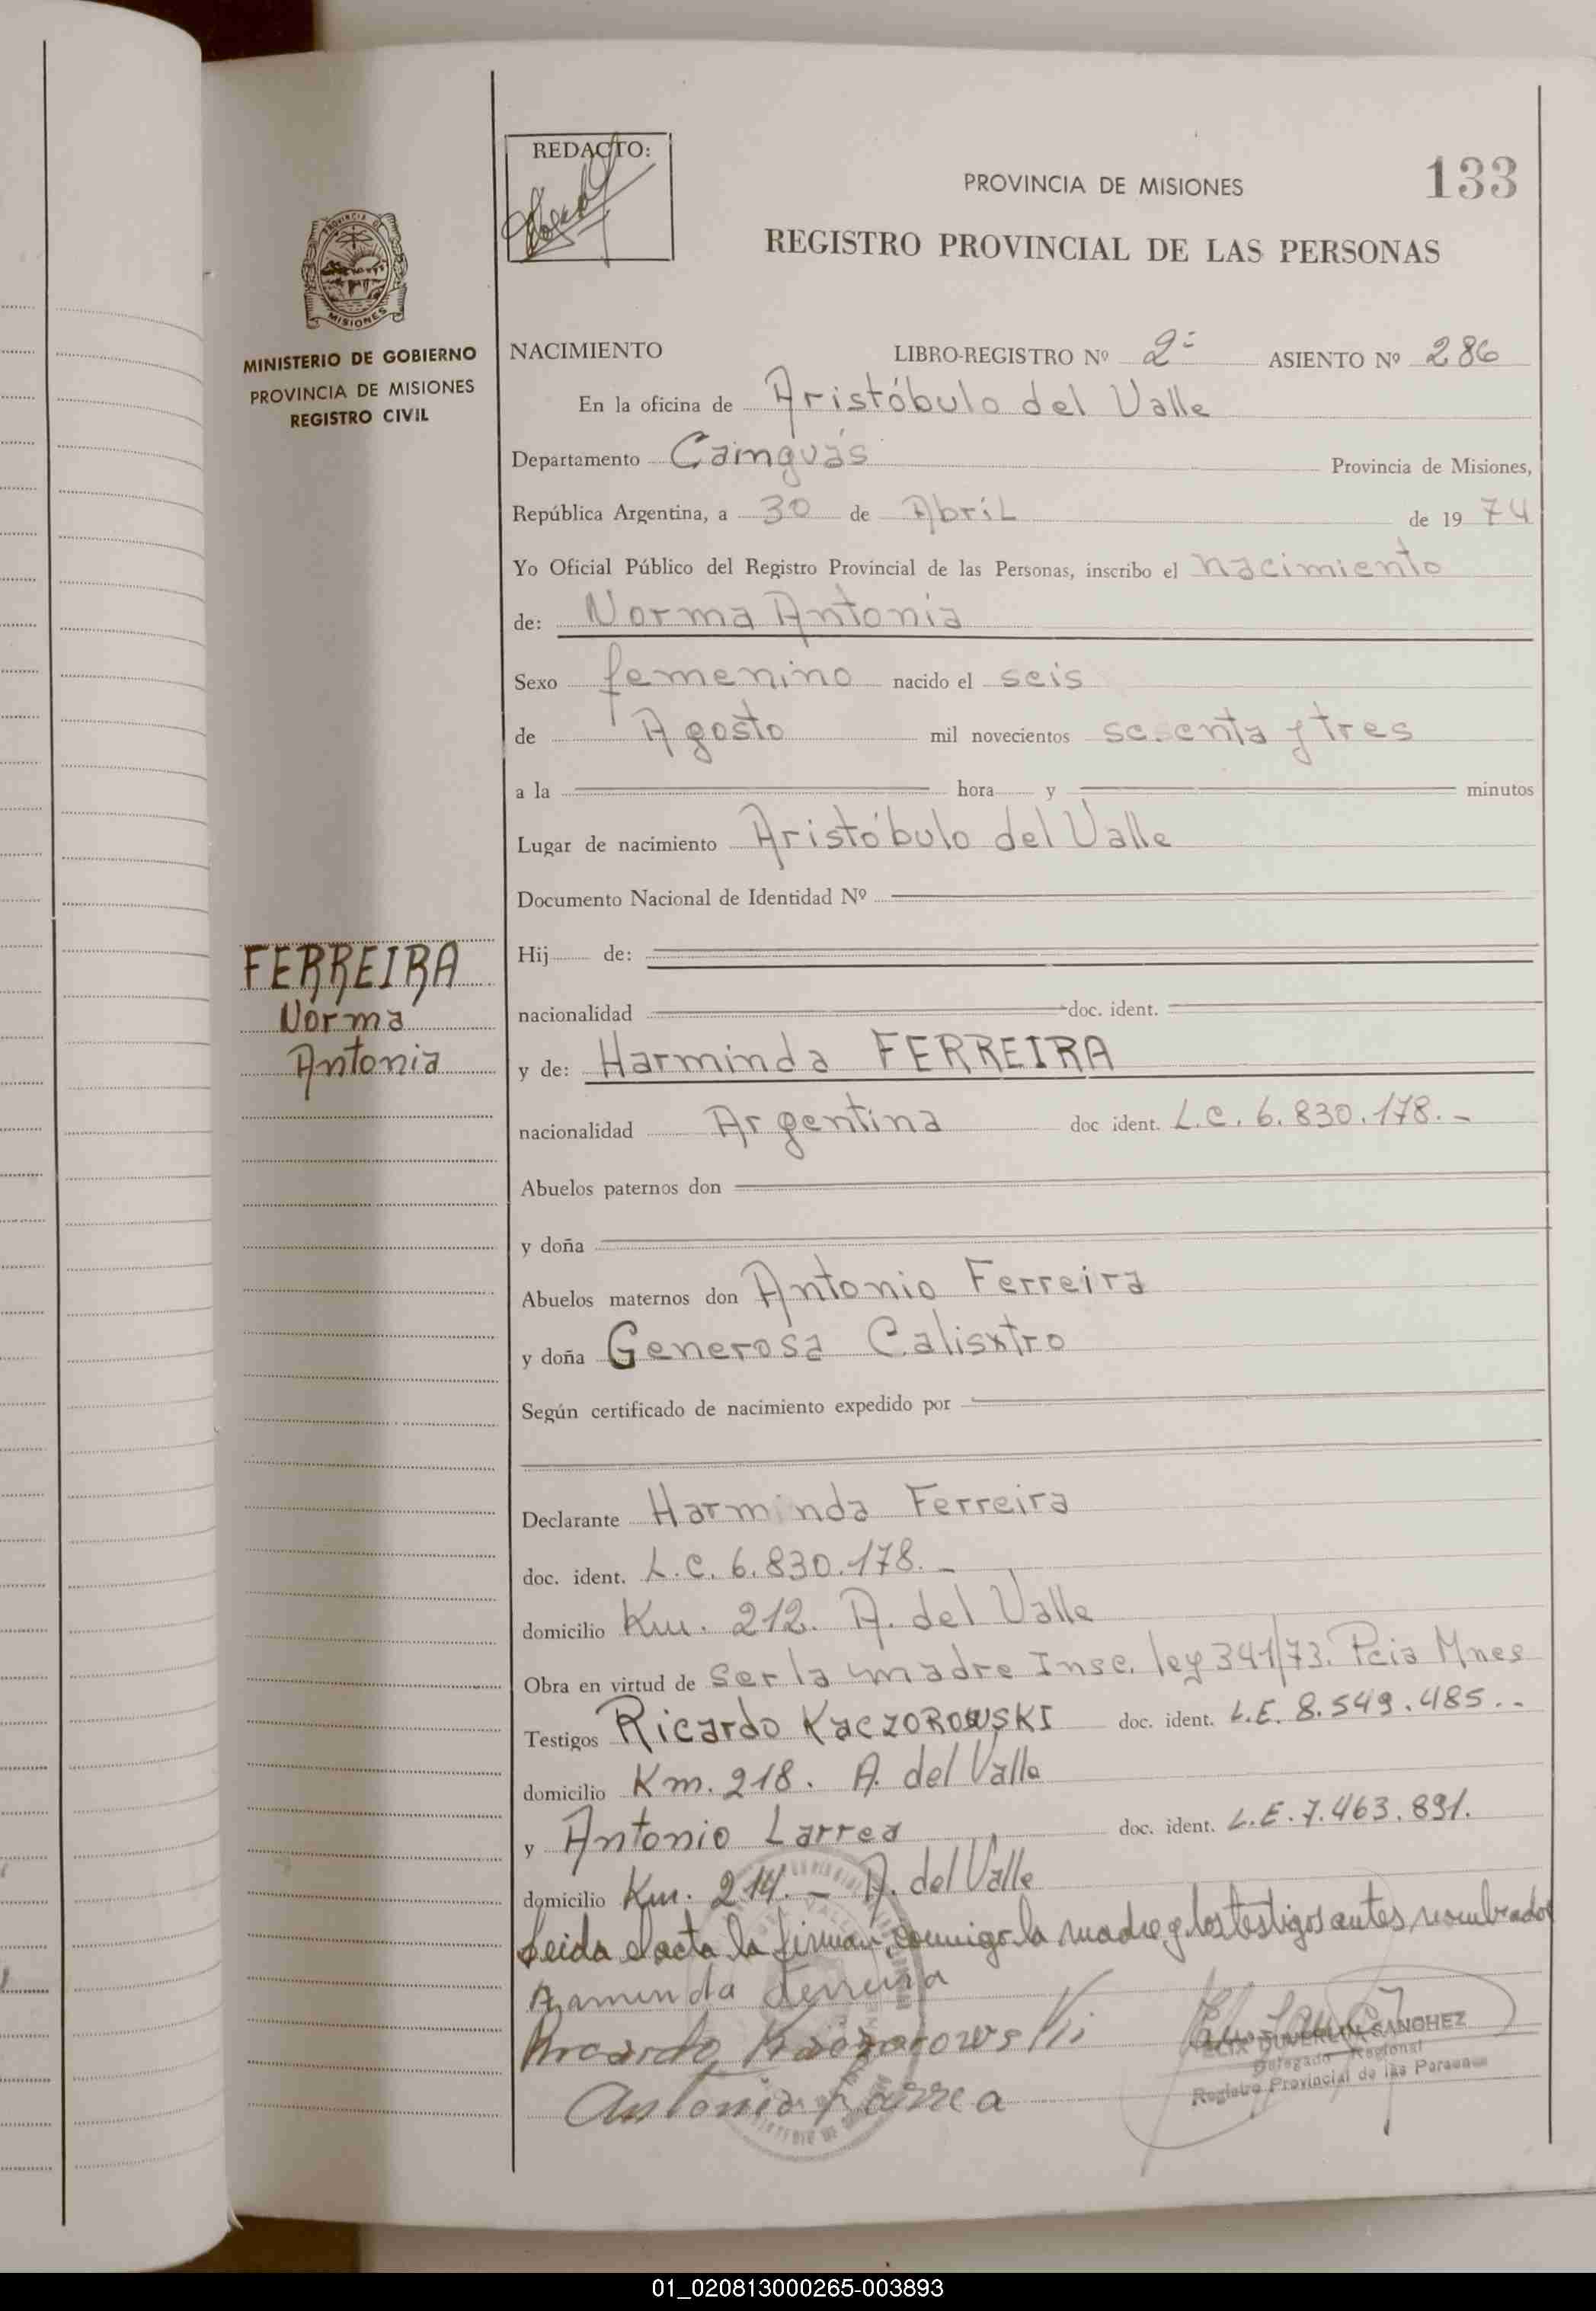 REDACTO:
PROVINCIA DE MISIONES
133
REGISTRO PROVINCIAL DE LAS PERSONAS
PROVINCIA DE
MISIONES
MINISTERIO DE GOBIERNO
PROVINCIA DE MISIONES
REGISTRO CIVIL
NACIMIENTO LIBRO-REGISTRO Nº 2º ASIENTO Nº 286
En la oficina de Aristóbulo del Valle
Departamento Cainguás Provincia de Misiones,
República Argentina, a 30 de Abril de 19 74
Yo Oficial Público del Registro Provincial de las Personas, inscribo el nacimiento
de: Norma Antonia
Sexo femenino nacido el seis
de Agosto mil novecientos sesenta y tres
a la hora y minutos
Lugar de nacimiento Aristóbulo del Valle
Documento Nacional de Identidad Nº
FERREIRA
Norma
Antonia
Hij de:
nacionalidad doc. ident.
y de: Harminda FERREIRA
nacionalidad Argentina doc ident. L.C. 6.830.178.-
Abuelos paternos don
y doña
Abuelos maternos don Antonio Ferreira
y doña Generosa Calisxtro
Según certificado de nacimiento expedido por
Declarante Harminda Ferreira
doc. ident. L.C. 6.830.178.-
domicilio Km. 212. A. del Valle
Obra en virtud de ser la madre Insc. ley 341/73. Pcia Mnes
Testigos Ricardo KaczoROWSKI doc. ident. L.E. 8.549.485.-
domicilio Km. 218. A. del Valle
y Antonio Larrea doc. ident. L.E. 7.463.891.
domicilio Km. 214.- A. del Valle
Leida el acta la firman conmigo la madre y los testigos antes nombrados
Arminda Ferreira
Ricardo Kaczorowski
FELIX DUVERLIN SANCHEZ
Delegado Regional
Registro Provincial de las Personas
Antonio Larrea
01_020813000265-003893